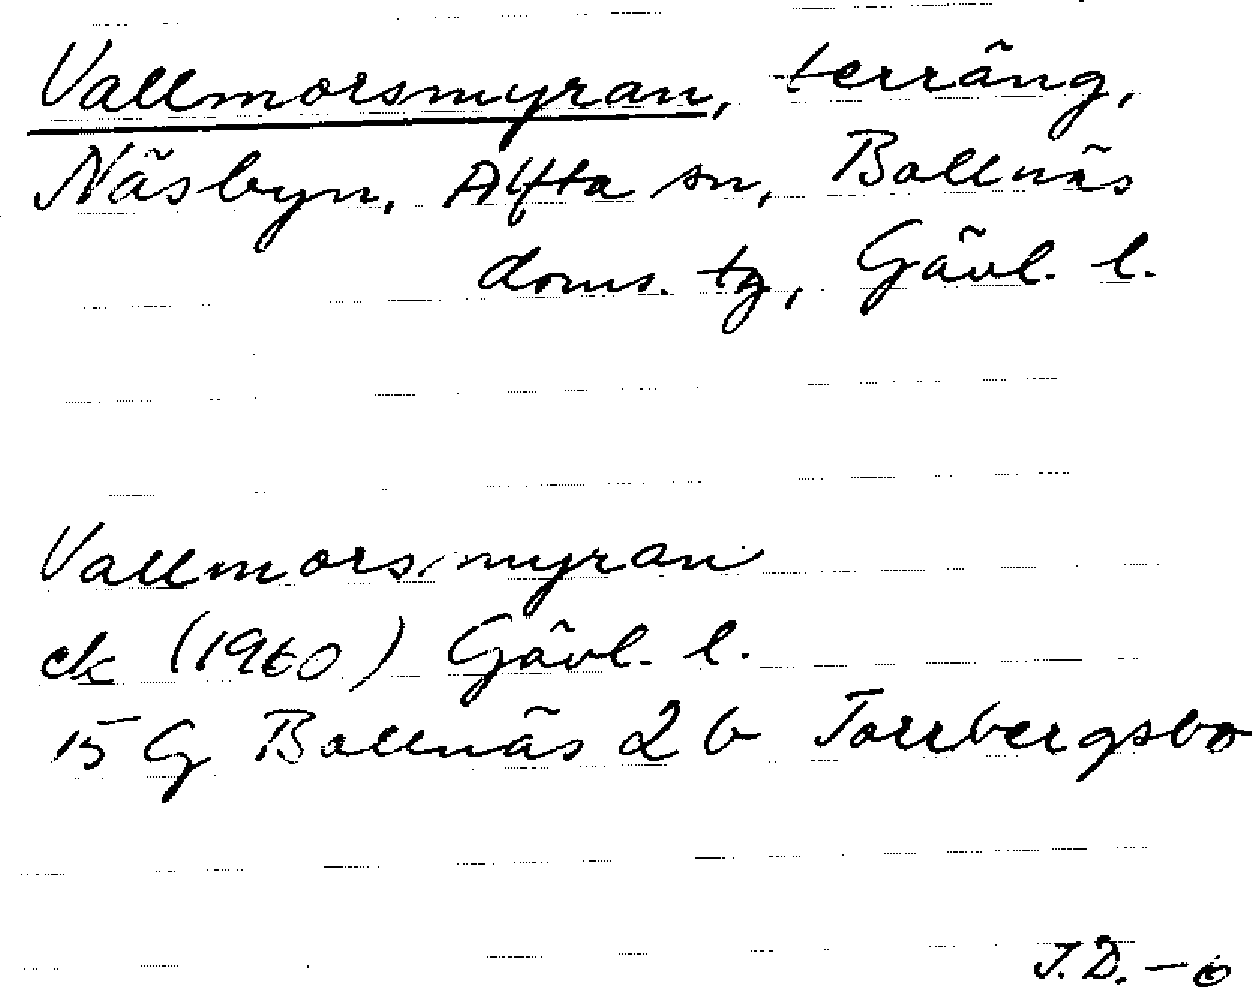 Vallmorsmyran, terräng,
Näsbyn, Alfta sn, Bollnäs
doms. tg, Gävl. l.
Vallmorsmyran
ek (1960) Gävl. l.
15 G Bollnäs 2 b Torrbergsbo
J.D. –